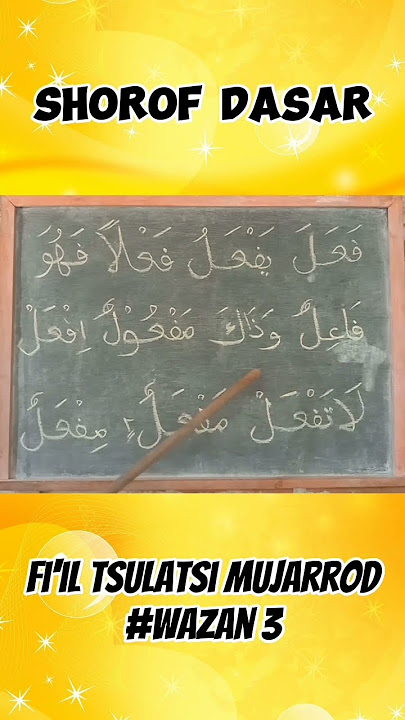 SHOROF DASAR
فَعَلَ يَفْعَلُ فَعْلاً فَهُوَ
فَاعِلٌ وَذَاكَ مَفْعُوْلٌ اِفْعَلْ
لَا تَفْعَلْ مَفْعَلٌ ٢ مِفْعَلٌ
FI'IL TSULATSI MUJARROD
#WAZAN 3